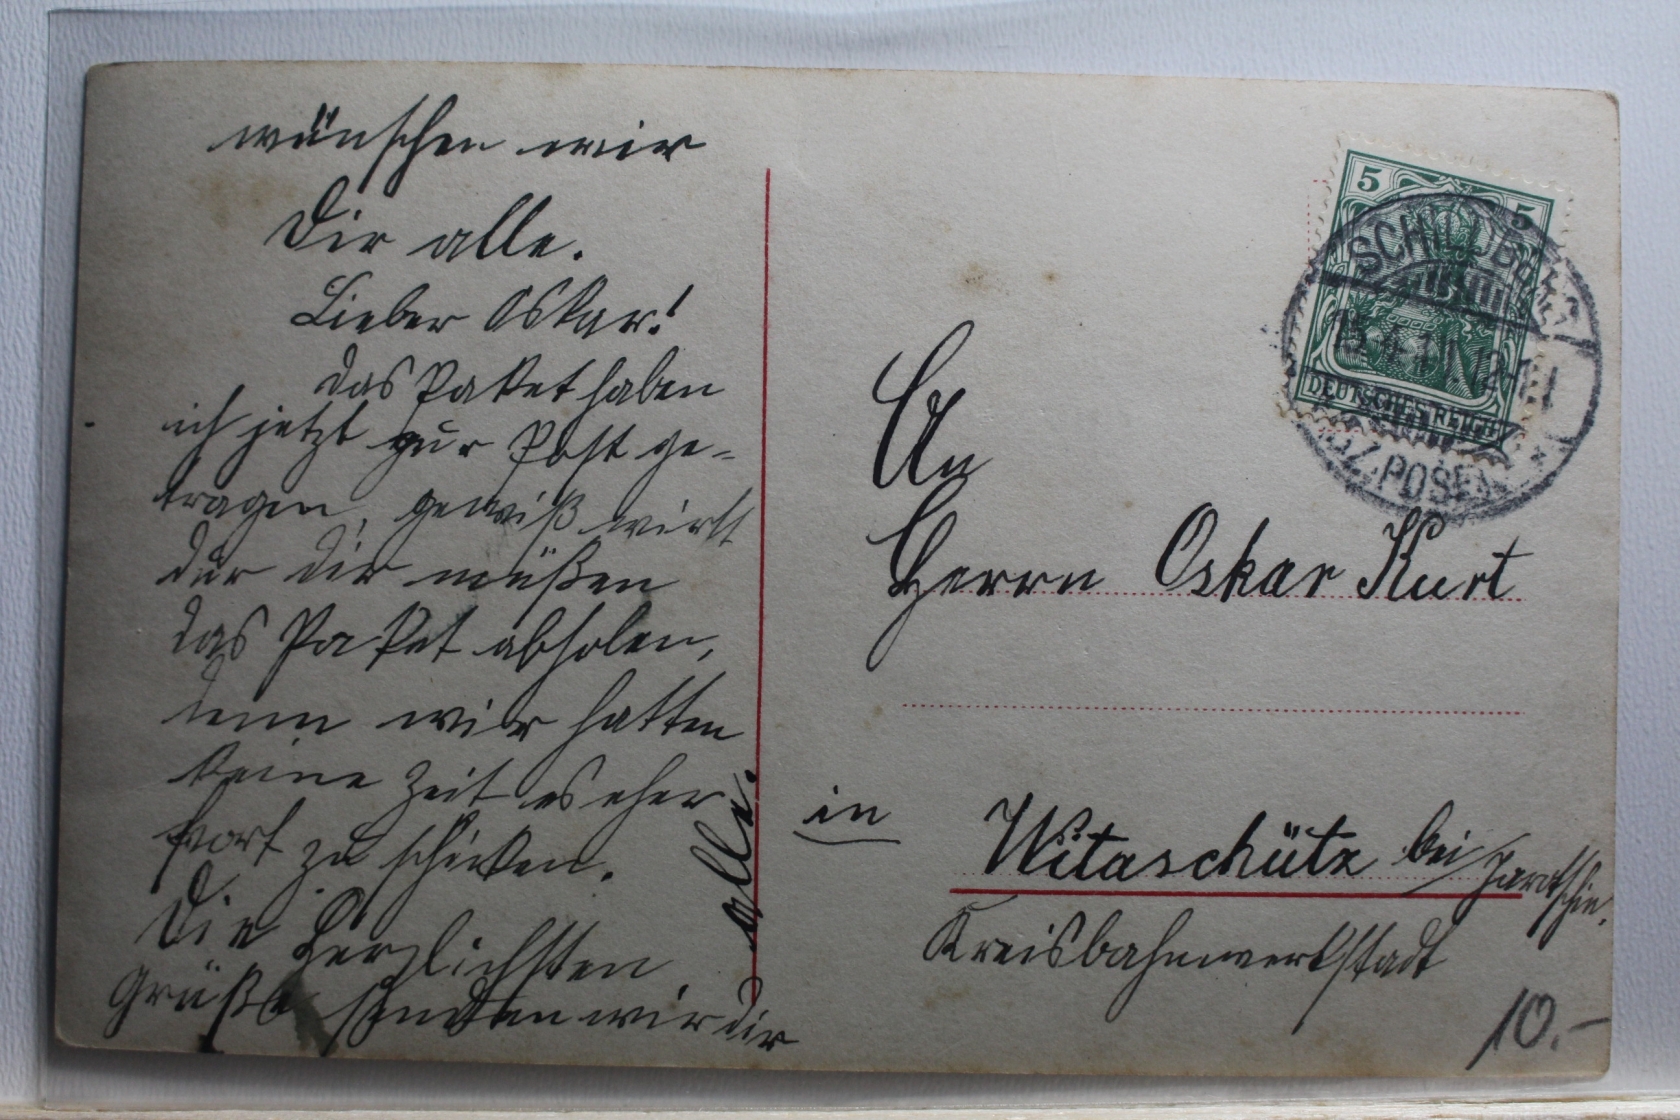 wünschen wir
Dir alle.
Lieber Oskar!
Das Paket haben
ich jetzt zur Post ge-
tragen, gewiß wirst
dur dir müßen
das Paket abholen,
denn wir hatten
keine Zeit es eher
fort zu schicken.
Die herzlichsten
Grüße senden wir dir
alle.
5 5
SCHILDBERG
15.4.11. 12-1N
DEUTSCHES REICH
BZ. POSEN
An
Herrn Oskar Kurt
in Witaschütz bei Jarotschin.
Kreisbahnwerkstadt
10.-